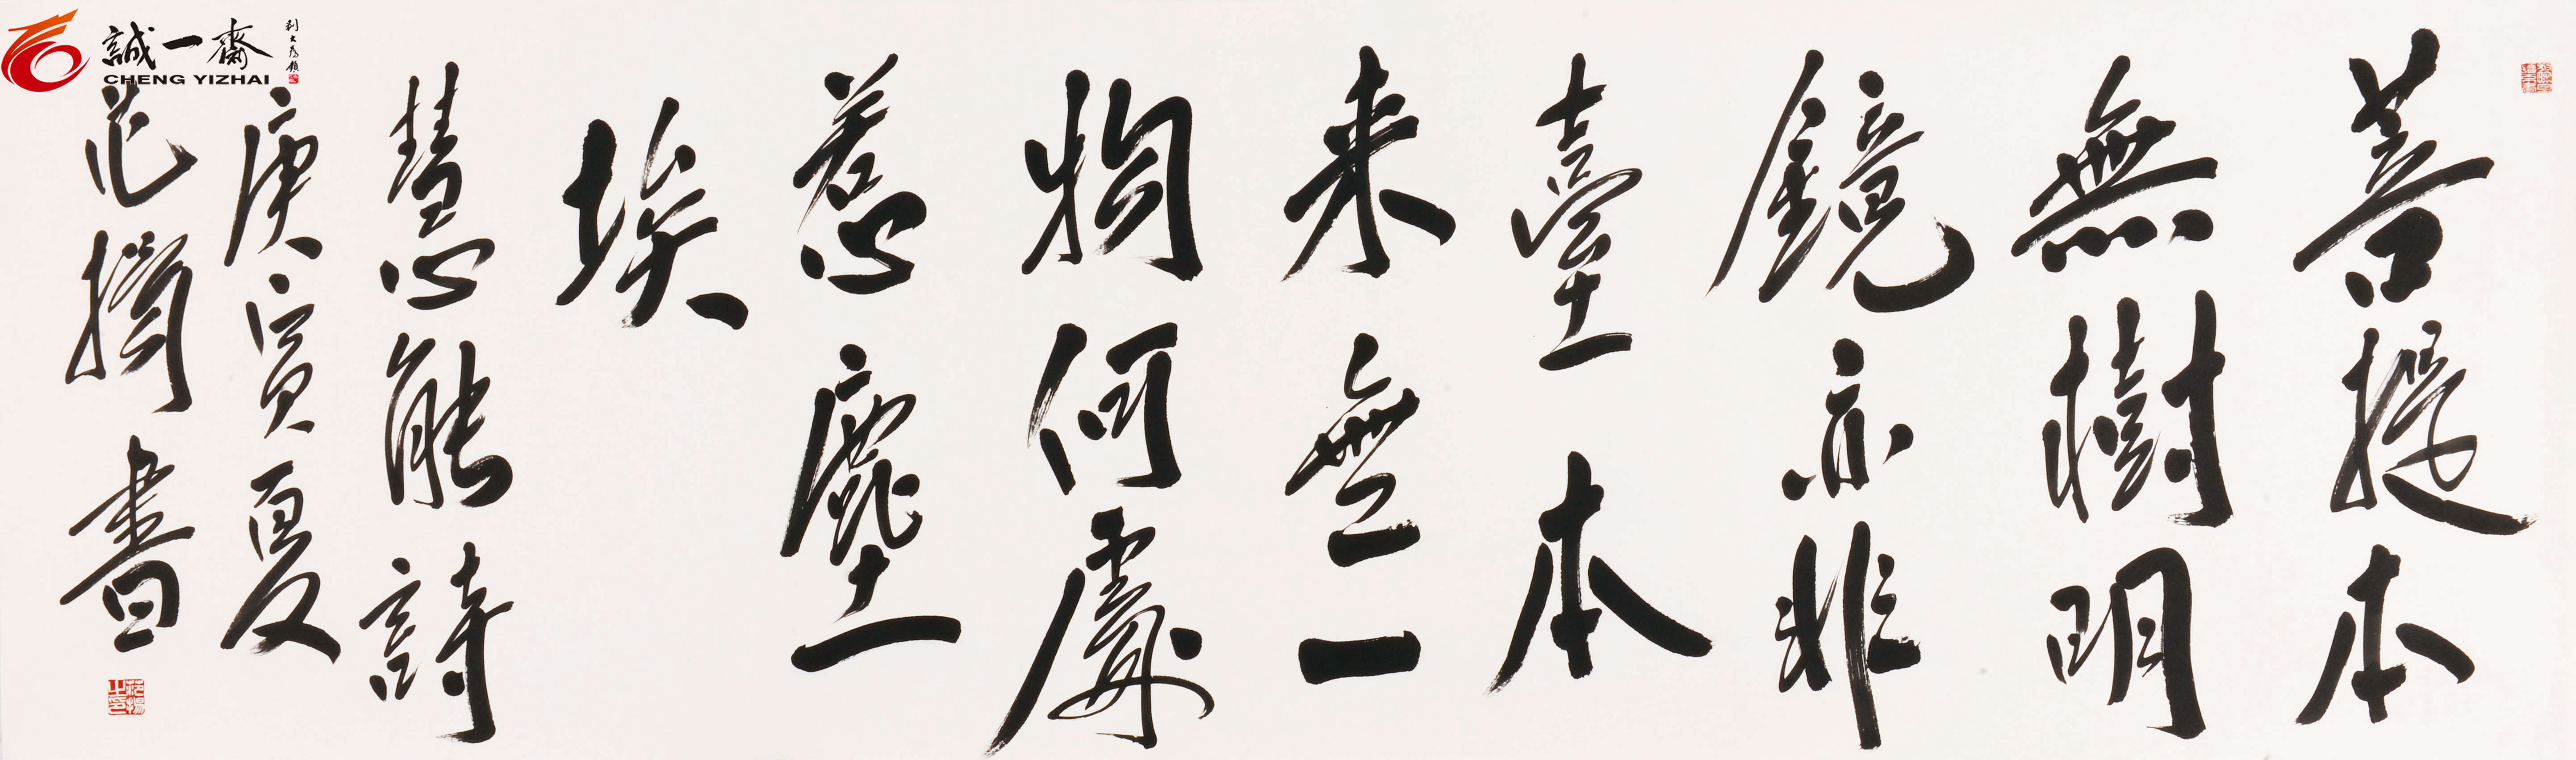 菩提本
無樹明
鏡亦非
臺本
来無一
物何處
惹塵
埃
慧能詩
庚寅夏
范揚書
誠一齋
CHENG YIZHAI